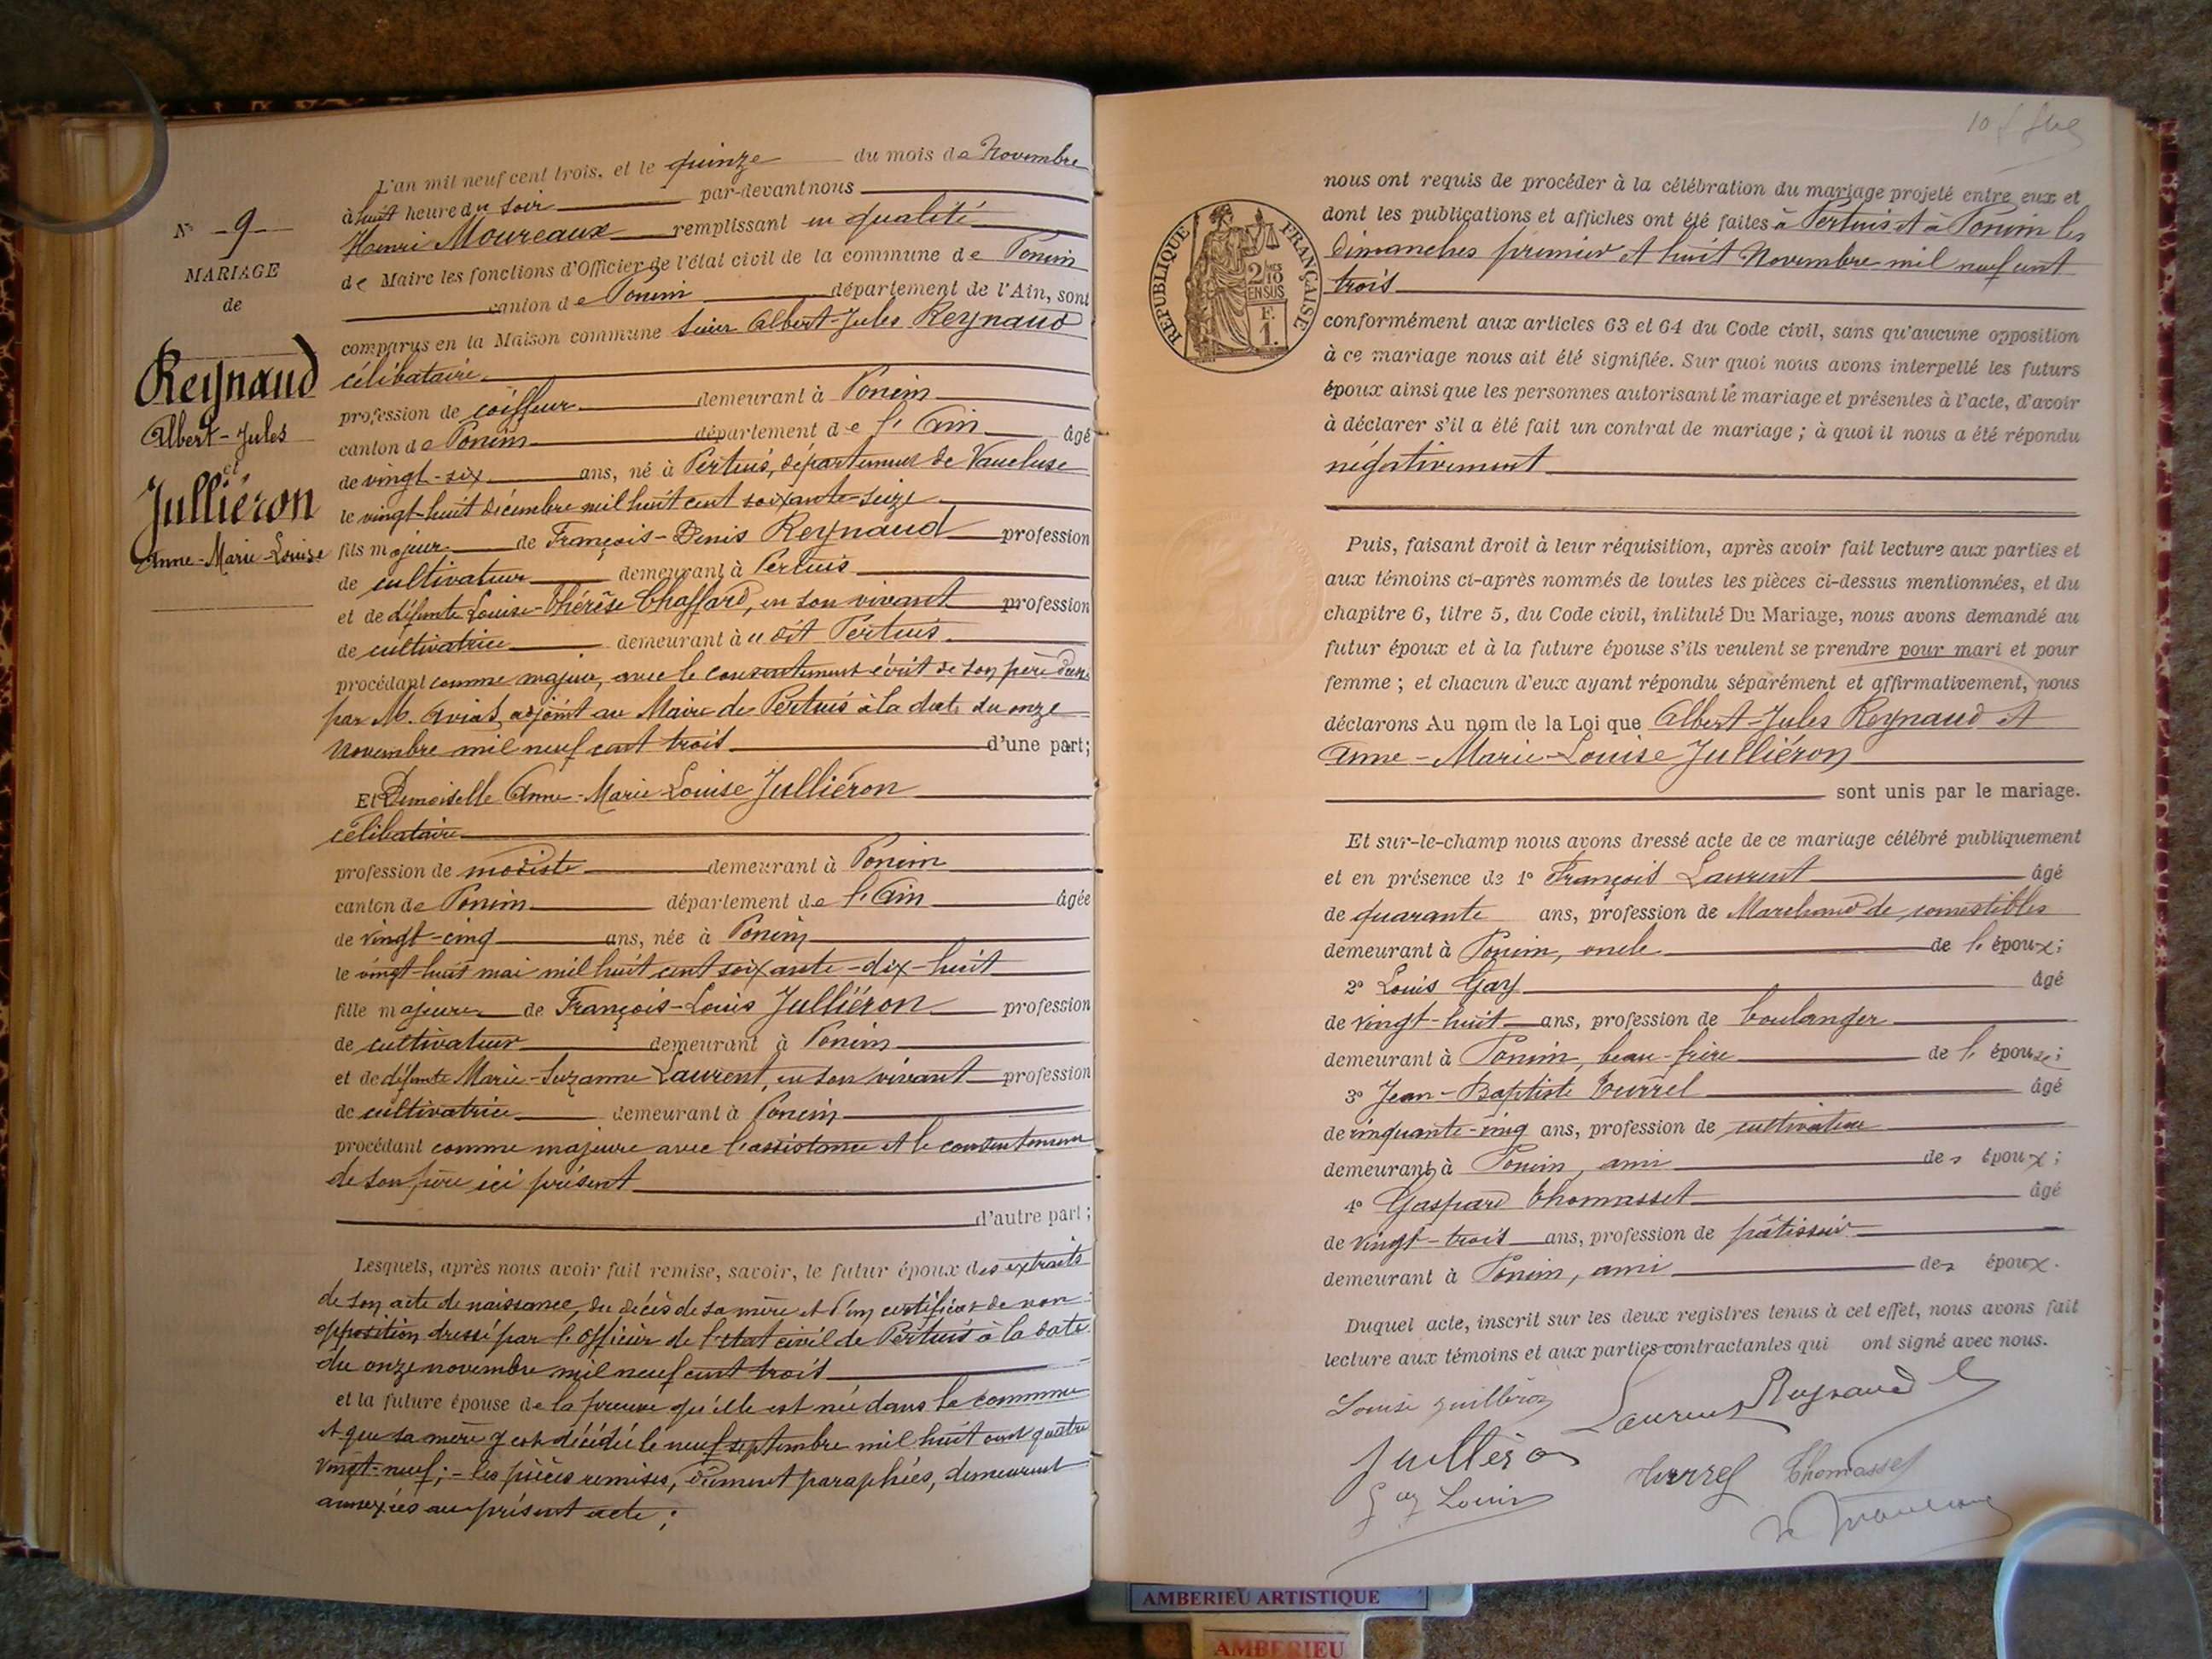 N° 9
MARIAGE
de
Reynaud
Albert-Jules
et
Julliéron
Anne-Marie-Louise
L'an mil neuf cent trois, et le quinze du mois de Novembre
à huit heure du soir par-devant nous
Henri Moureaux remplissant en qualité
de Maire les fonctions d'Officier de l'état civil de la commune de Poncin
canton de Poncin département de l'Ain, sont
comparus en la Maison commune Sieur Albert-Jules Reynaud
célibataire
profession de coiffeur demeurant à Poncin
canton de Poncin département de l'Ain âgé
de vingt-six ans, né à Pertuis, département de Vaucluse
le vingt-huit décembre mil huit cent soixante-seize
fils majeur de François-Denis Reynaud profession
de cultivateur demeurant à Pertuis
et de défunte Louise-Thérèse Chaffard, en son vivant profession
de cultivatrice demeurant à u dit Pertuis
procédant comme majeur, avec le consentement écrit de son père
par M. adjoint au Maire de Pertuis à la date du onze
Novembre mil neuf cent trois d'une part;
Et Demoiselle Anne-Marie-Louise Julliéron
célibataire
profession de modiste demeurant à Poncin
canton de Poncin département de l'Ain âgée
de vingt-cinq ans, née à Poncin
le vingt-huit mai mil huit cent soixante-dix-huit
fille majeure de François-Louis Julliéron profession
de cultivateur demeurant à Poncin
et de défunte Marie-Suzanne Laurent, en son vivant profession
de cultivatrice demeurant à Poncin
procédant comme majeure avec l'assistance et le consentement
de son père ici présent
d'autre part;
Lesquels, après nous avoir fait remise, savoir, le futur époux des extraits
de son acte de naissance, du décès de sa mère et d'un certificat de non
opposition dressé par l'officier de l'état civil de Pertuis à la date
du onze novembre mil neuf cent trois
et la future épouse de la preuve qu'elle est née dans la commune
et que sa mère y est décédée le neuf septembre mil huit cent quatre
vingt-neuf; - les pièces remises, dûment paraphées, demeurent
annexées au présent acte;
10
RÉPUBLIQUE FRANÇAISE
2/10 EN SUS
F.
1.
nous ont requis de procéder à la célébration du mariage projeté entre eux et
dont les publications et affiches ont été faites à Pertuis et à Poncin les
dimanches premier et huit Novembre mil neuf cent
trois
conformément aux articles 63 et 64 du Code civil, sans qu'aucune opposition
à ce mariage nous ait été signifiée. Sur quoi nous avons interpellé les futurs
époux ainsi que les personnes autorisant le mariage et présentes à l'acte, d'avoir
à déclarer s'il a été fait un contrat de mariage; à quoi il nous a été répondu
négativement
Puis, faisant droit à leur réquisition, après avoir fait lecture aux parties et
aux témoins ci-après nommés de toutes les pièces ci-dessus mentionnées, et du
chapitre 6, titre 5, du Code civil, intitulé Du Mariage, nous avons demandé au
futur époux et à la future épouse s'ils veulent se prendre pour mari et pour
femme; et chacun d'eux ayant répondu séparément et affirmativement, nous
déclarons Au nom de la Loi que Albert-Jules Reynaud et
Anne-Marie-Louise Julliéron
sont unis par le mariage.
Et sur-le-champ nous avons dressé acte de ce mariage célébré publiquement
et en présence de 1° François Laurent âgé
de quarante ans, profession de Marchand de comestibles
demeurant à Poncin, oncle de l'époux;
2° Louis Gay âgé
de vingt-huit ans, profession de boulanger
demeurant à Poncin, beau-frère de l'épouse;
3° Jean-Baptiste Turrel âgé
de cinquante-cinq ans, profession de cultivateur
demeurant à Poncin, ami des époux;
4° Gaspard Thomasset âgé
de vingt-trois ans, profession de pâtissier
demeurant à Poncin, ami des époux.
Duquel acte, inscrit sur les deux registres tenus à cet effet, nous avons fait
lecture aux témoins et aux parties contractantes qui ont signé avec nous.
Louise Juilliéron Laurent Reynaud
Juilléron Turrel Thomasset
Gay Louis
AMBERIEU ARTISTIQUE
AMBERIEU